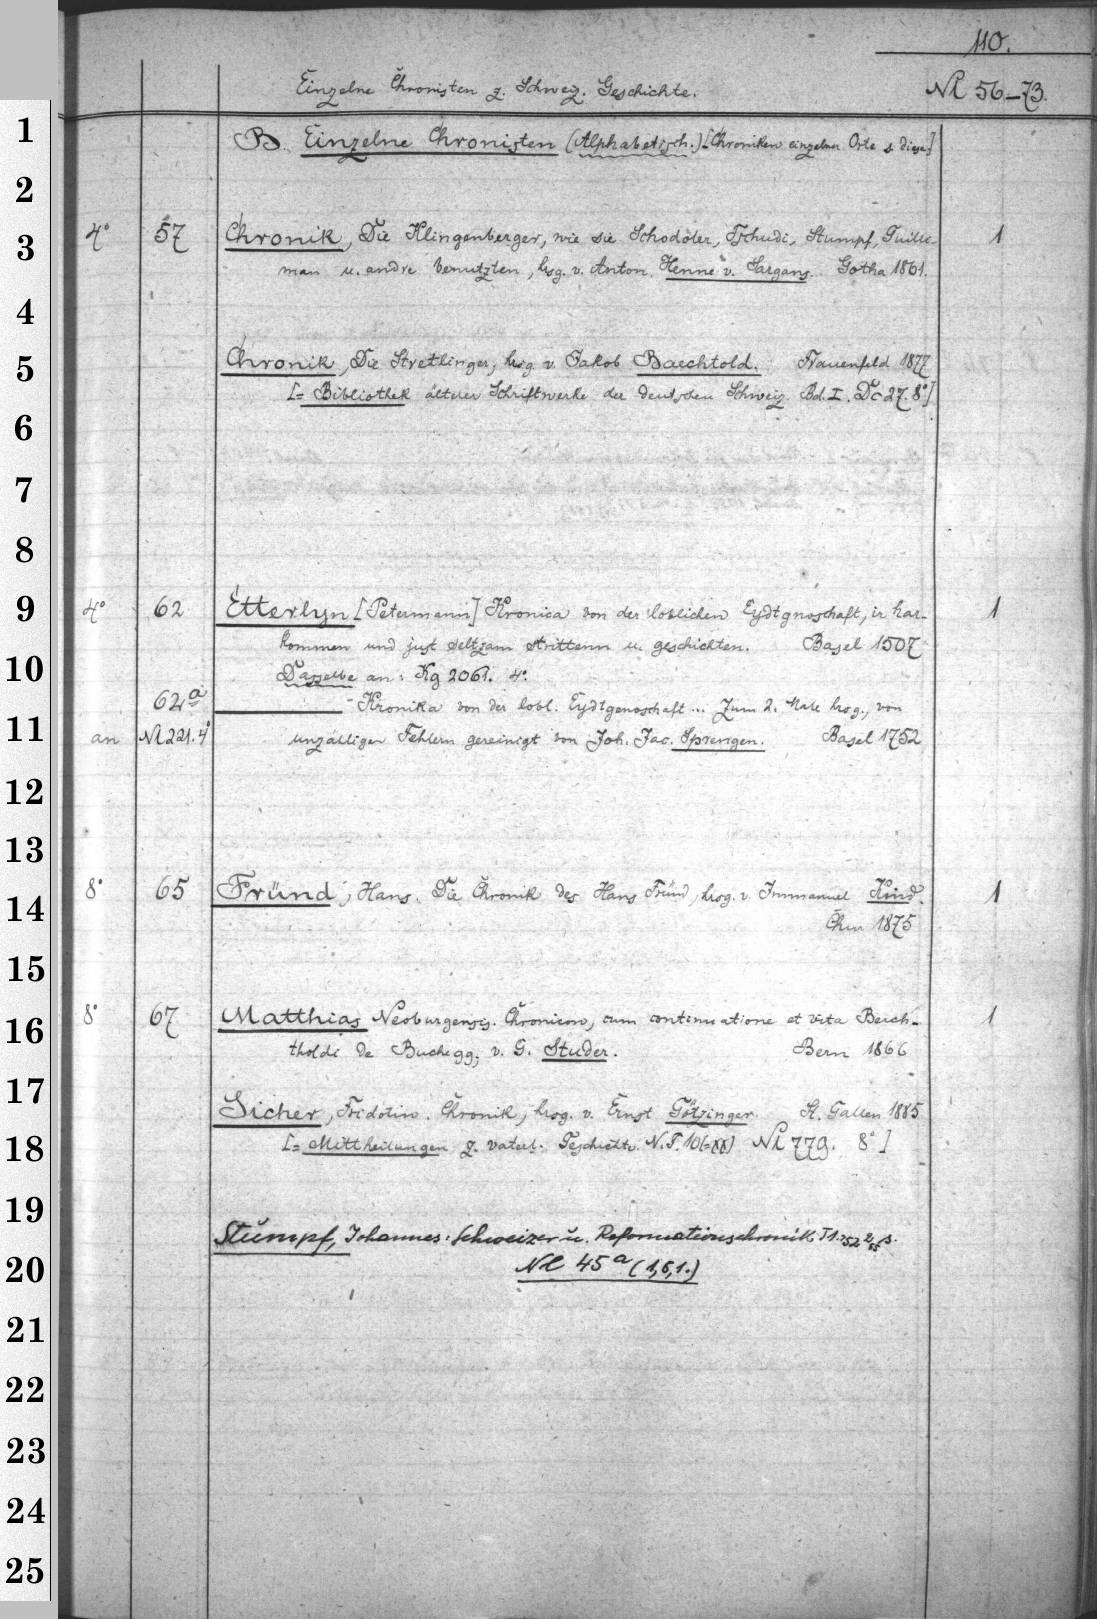 110.
Einzelne Chronisten z. Schweiz. Geschichte. Nl 56-73.
1
B. Einzelne Chronisten (Alphabetisch.) [Chroniken einzelner Orte s. diese]
2
3 4° 57 Chronik, Die Klingenberger, wie sie Schodoler, Tschudi, Stumpf, Guilli- 1
man u. andre benutzten, hrsg. v. Anton Henne v. Sargans. Gotha 1861.
4
5 Chronik, Die Stretlinger, hrsg v. Jakob Baechtold. Frauenfeld 1877
[= Bibliothek älterer Schriftwerke der deutschen Schweiz. Bd. I. Dc 27. 8°]
6
7
8
9 4° 62 Etterlyn [Petermann] Kronica von der loblichen Eydtgnoschaft, ir har- 1
kommen und sust seltzam strittenn u. geschichten. Basel 1507
10 Dasselbe an: Kg 2061. 4°
62a ——— - Kronika von der lobl. Eydtgenoschaft ... Zum 2. Male hrsg., von
11 an Nl 221. 4° unzälligen Fehlern gereinigt von Joh. Jac. Sprengen. Basel 1752
12
13
14 8° 65 Fründ, Hans. Die Chronik des Hans Fründ, hrsg. v. Immanuel Kind. 1
Chur 1875
15
16 8° 67 Matthias Neoburgensis. Chronicon, cum continuatione et vita Berch- 1
tholdi de Buchegg, v. G. Studer. Bern 1866
17
Sicher, Fridolin. Chronik, hrsg. v. Ernst Götzinger. St. Gallen 1885
18 [= Mittheilungen z. vaterl. Geschichte. N. F. 10 (=XX) Nl 779. 8°]
19
Stumpf, Johannes: Schweizer u. Reformationschronik T1.
20 Nl 45a (1,5,1.)
21
22
23
24
25